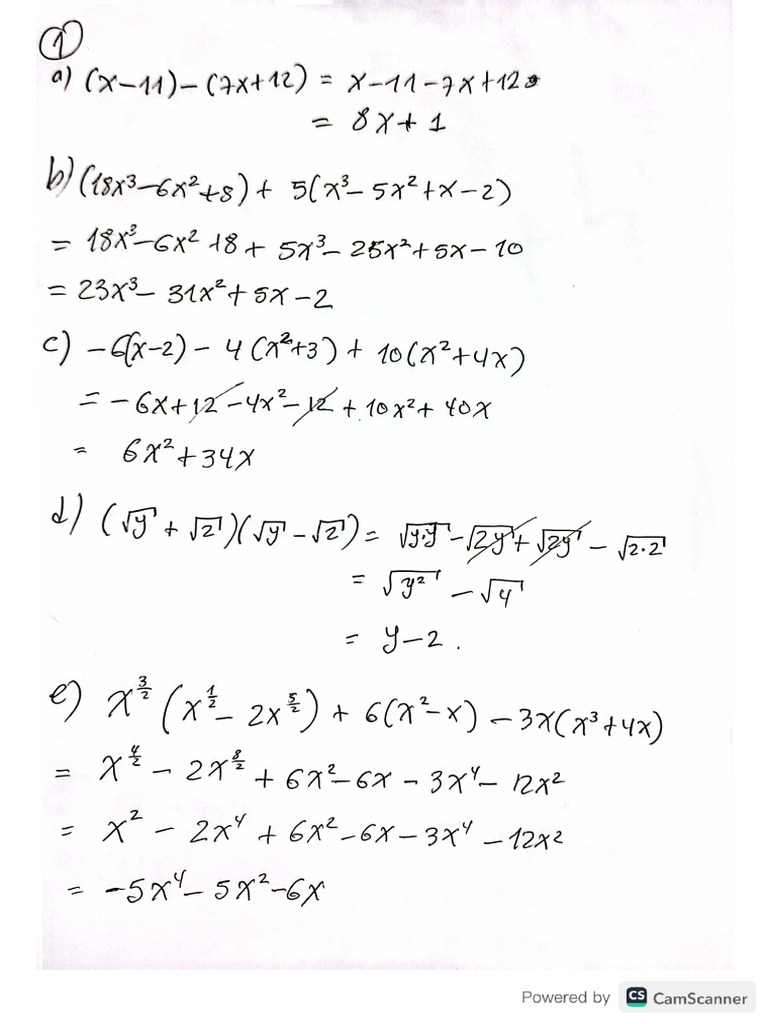 ①
a) (x-11)-(7x+12) = x-11-7x+12
= 8x+1
b) (18x³-6x²+8) + 5(x³-5x²+x-2)
= 18x³-6x²+8+5x³-25x²+5x-10
= 23x³-31x²+5x-2
c) -6(x-2)-4(x²+3)+10(x²+4x)
= -6x+12-4x²-12+10x²+40x
= 6x²+34x
d) (√y+√2)(√y-√2) = √y·y-√2y+√2y-√2·2
= √y²-√4
= y-2.
e) x^(3/2)(x^(1/2)-2x^(5/2))+6(x²-x)-3x(x³+4x)
= x^(4/2)-2x^(8/2)+6x²-6x-3x⁴-12x²
= x²-2x⁴+6x²-6x-3x⁴-12x²
= -5x⁴-5x²-6x
Powered by CS CamScanner